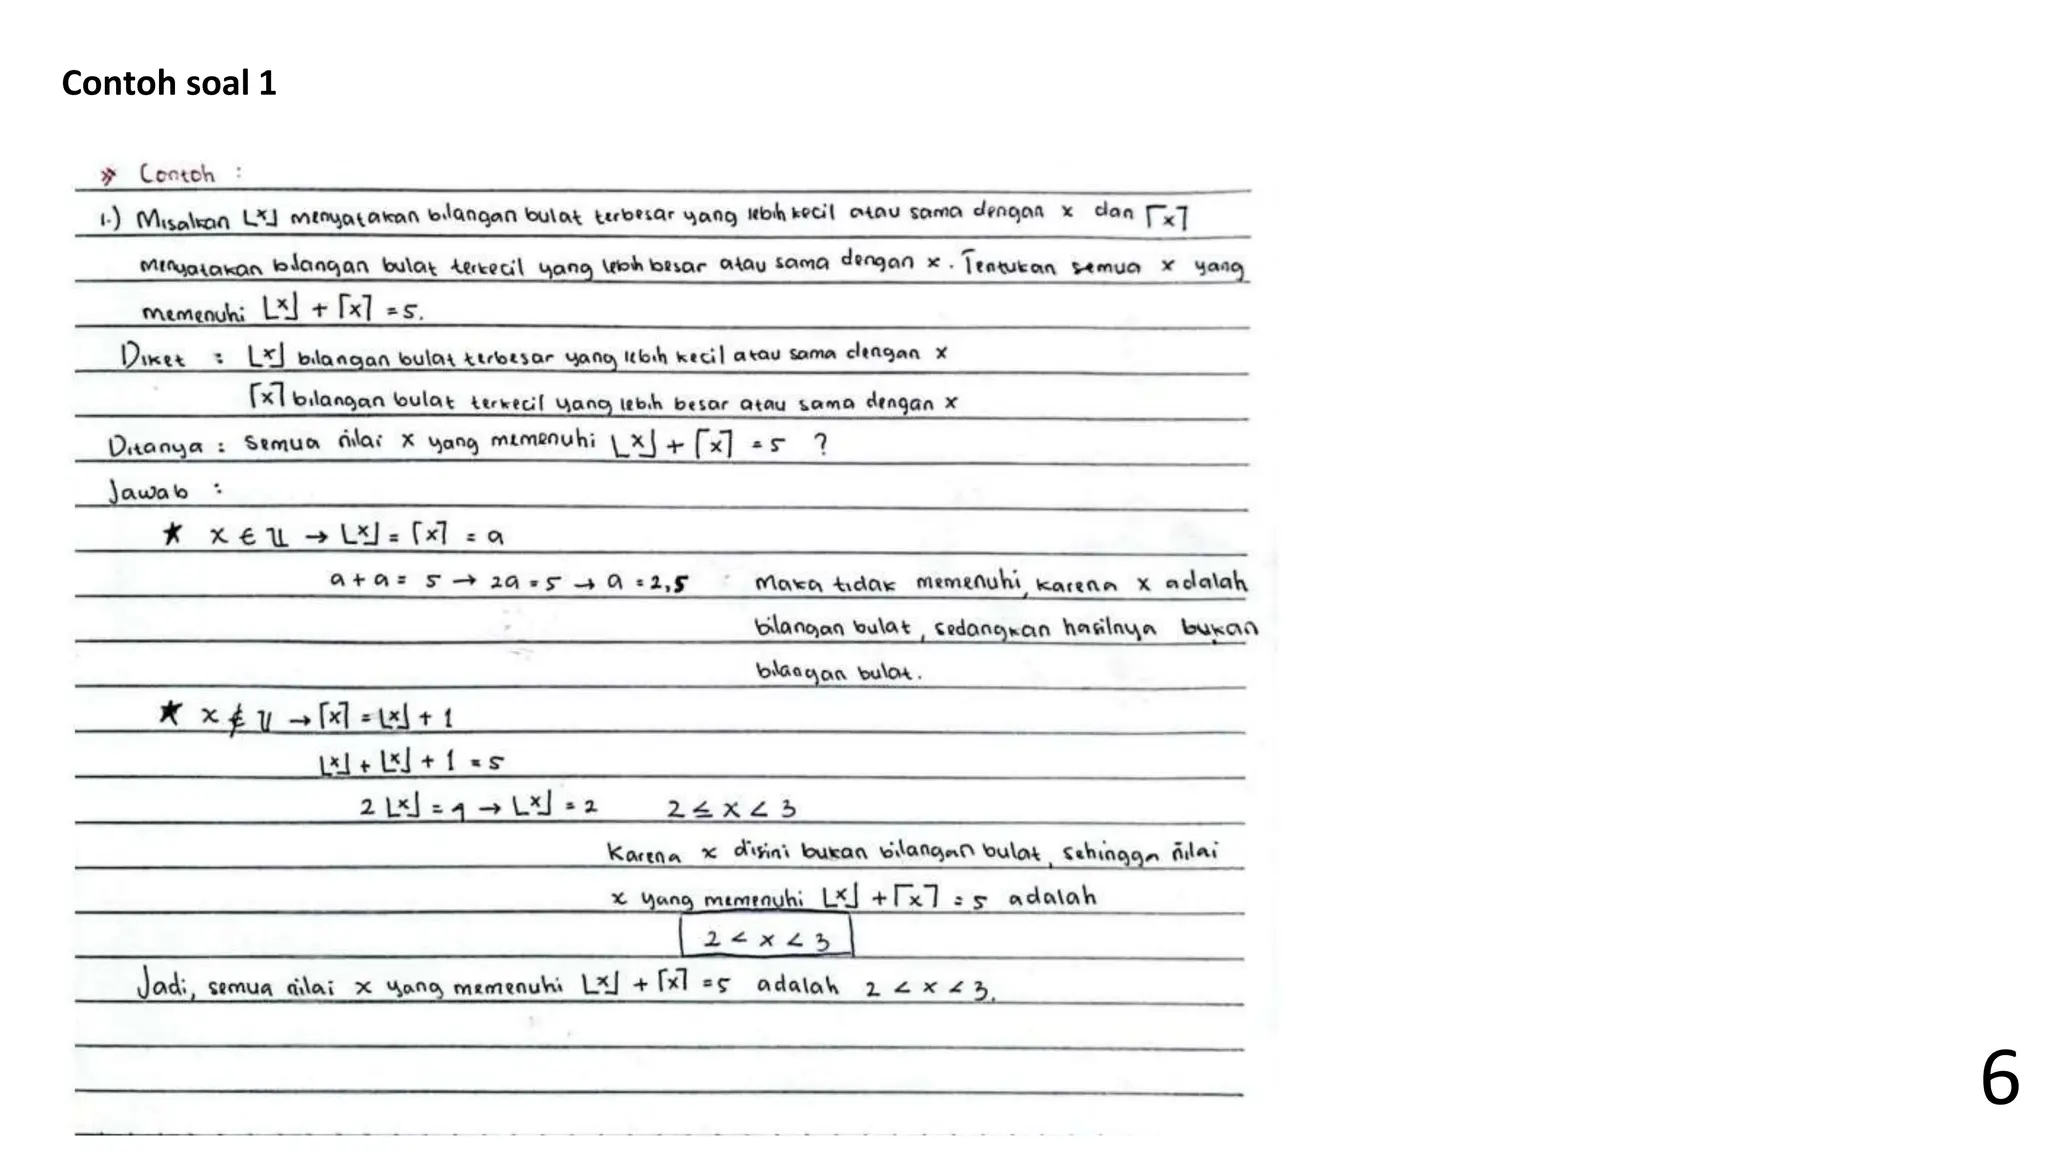 Contoh soal 1
» Contoh :
1.) Misalkan ⌊x⌋ menyatakan bilangan bulat terbesar yang lebih kecil atau sama dengan x dan ⌈x⌉
menyatakan bilangan bulat terkecil yang lebih besar atau sama dengan x. Tentukan semua x yang
memenuhi ⌊x⌋ + ⌈x⌉ = 5.
Diket : ⌊x⌋ bilangan bulat terbesar yang lebih kecil atau sama dengan x
⌈x⌉ bilangan bulat terkecil yang lebih besar atau sama dengan x
Ditanya : Semua nilai x yang memenuhi ⌊x⌋ + ⌈x⌉ = 5 ?
Jawab :
★ x ∈ ℤ → ⌊x⌋ = ⌈x⌉ = a
a + a = 5 → 2a = 5 → a = 2,5 Maka tidak memenuhi, karena x adalah
bilangan bulat, sedangkan hasilnya bukan
bilangan bulat.
★ x ∉ ℤ → ⌈x⌉ = ⌊x⌋ + 1
⌊x⌋ + ⌊x⌋ + 1 = 5
2 ⌊x⌋ = 4 → ⌊x⌋ = 2 2 ≤ x < 3
Karena x disini bukan bilangan bulat, sehingga nilai
x yang memenuhi ⌊x⌋ + ⌈x⌉ = 5 adalah
2 < x < 3
Jadi, semua nilai x yang memenuhi ⌊x⌋ + ⌈x⌉ = 5 adalah 2 < x < 3.
6